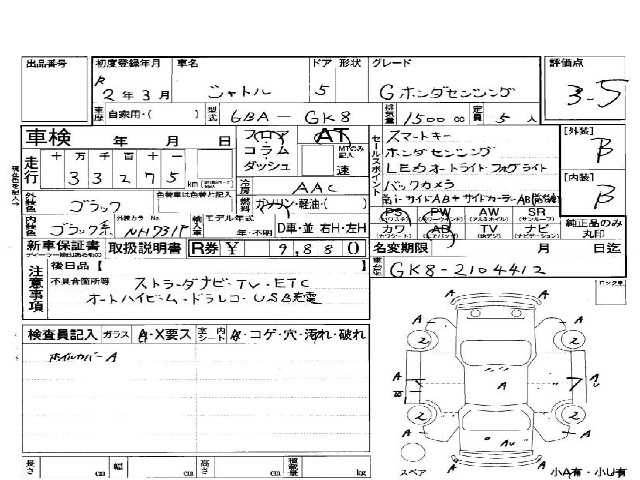 出品番号 初度登録年月 車名 ドア 形状 グレード 評価点
R 2年3月 シャトル 5 Gホンダセンシング 3-5
車歴 自家用・( ) 型式 6BA-GK8 排気量 1500 cc 定員 5人
車検 年 月 日 フロア AT スマートキー [外装]
コラム MTのみ記入 ホンダセンシング B
走行 十 万 千 百 十 一 ダッシュ 速 LEDオートライト・フォグライト
3 3 2 7 5 km バックカメラ [内装]
冷房 AAC B
外装色 ブラック 色替車は色替と記入 燃料 ガソリン・軽油・( ) PS PW AW SR
カワ AB TV ナビ 純正品のみ丸印
内装色 ブラック系 外装カラーNo NH731P 輸入車 モデル年式 年・不明 D車・並 右H・左H
新車保証書 取扱説明書 R券 ¥ 9,880 名変期限 月 日迄
セールスポイント
注意事項 後日品【 】 車台No GK8-2104412
不具合箇所等 ストラーダナビ・TV・ETC
オートハイビーム・ドラレコ・USB充電
検査員記入 ガラス A・X要ス 室内シート A・コゲ・穴・汚れ・破れ
ホイルカバーA
A A A A A A A AU AU
2 2 2 2
長さ cm 幅 cm 高さ cm 積載量 kg
スペア 小A有・小U有